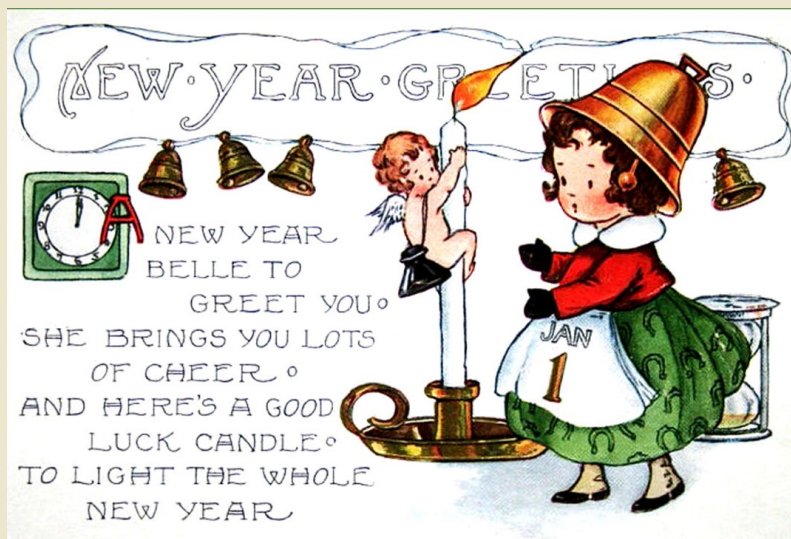 NEW·YEAR·GREETINGS·
A NEW YEAR
BELLE TO
GREET YOU
SHE BRINGS YOU LOTS
OF CHEER
AND HERE'S A GOOD
LUCK CANDLE
TO LIGHT THE WHOLE
NEW YEAR
JAN
1